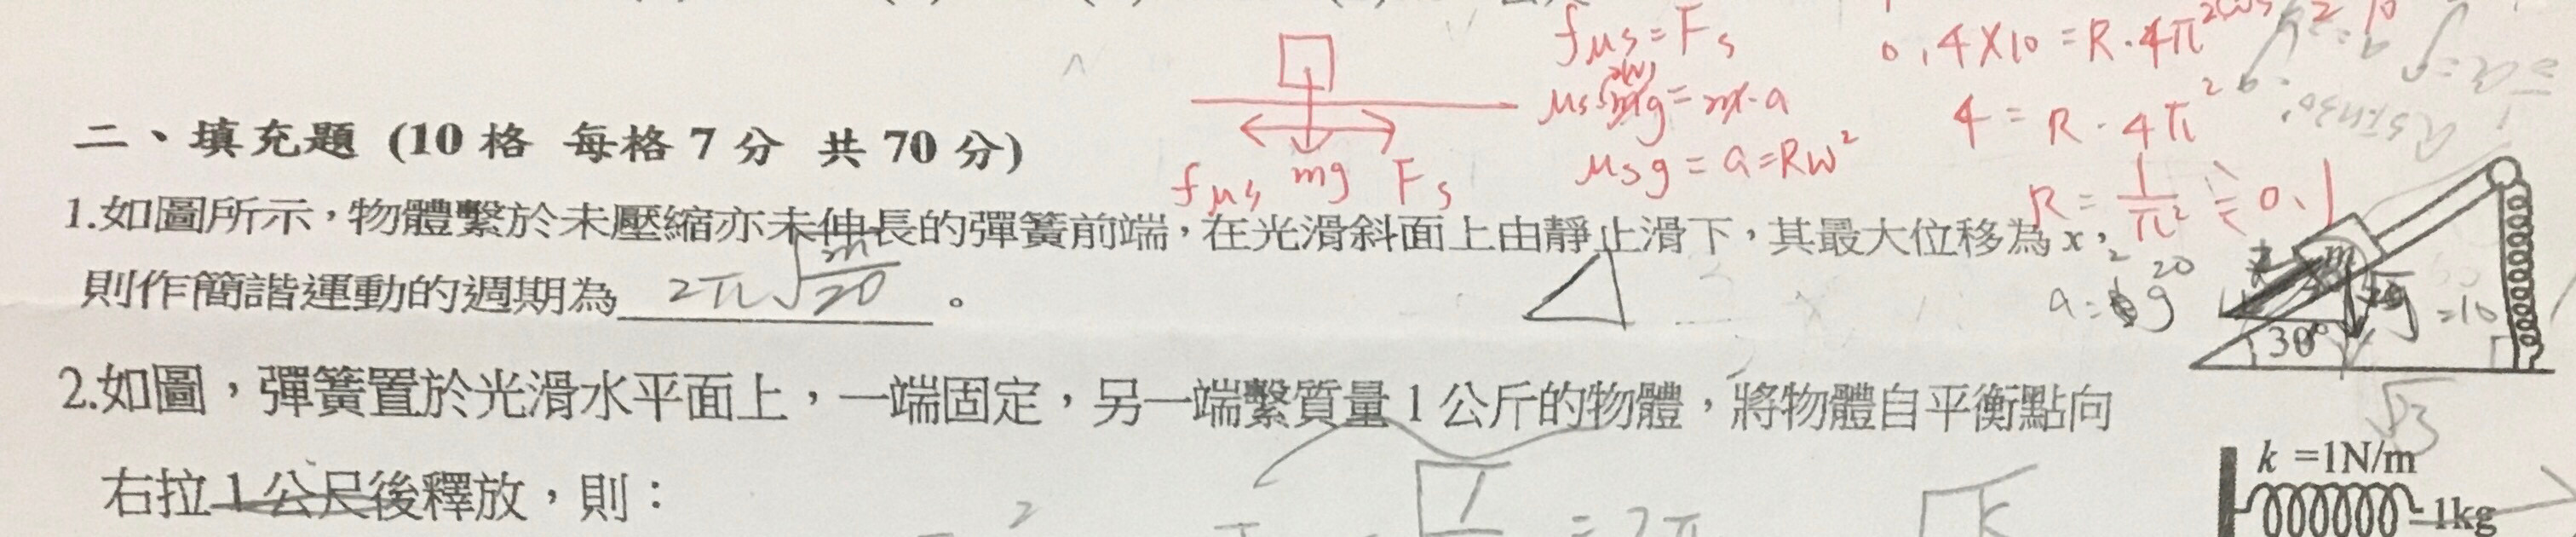 fμs = Fs
0.4×10 = R·4π²
μs mg = m·a
4 = R·4π²
μsg = a = Rω²
fμs mg Fs
R = 1/π² ≒ 0.1
二、填充題 (10 格 每格 7 分 共 70 分)
1.如圖所示，物體繫於未壓縮亦未伸長的彈簧前端，在光滑斜面上由靜止滑下，其最大位移為 x，
則作簡諧運動的週期為 2π√m/20 。
m
30°
=10
√3
2.如圖，彈簧置於光滑水平面上，一端固定，另一端繫質量 1 公斤的物體，將物體自平衡點向
右拉 1 公尺後釋放，則：
k =1N/m
1kg
= 2π